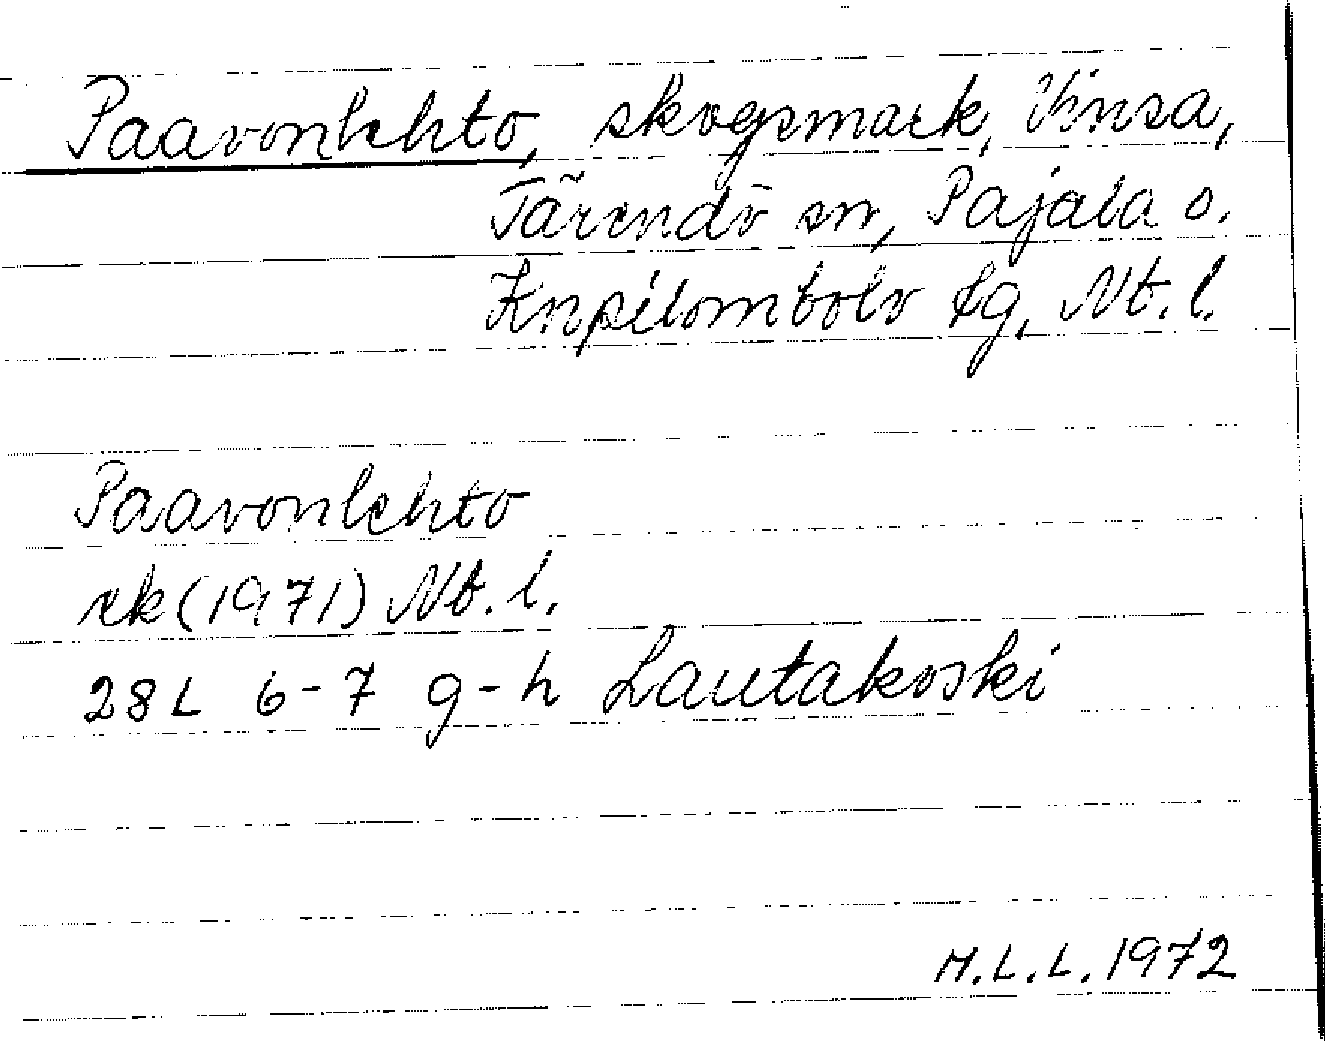 Paavonlehto, skogsmark, Vinsa,
Tärendö sn, Pajala o.
Korpilombolo tg, Nb. l.
Paavonlehto
ek (1971) Nb. l.
28L 6-7 g-h Lautakoski
M.L.L. 1972